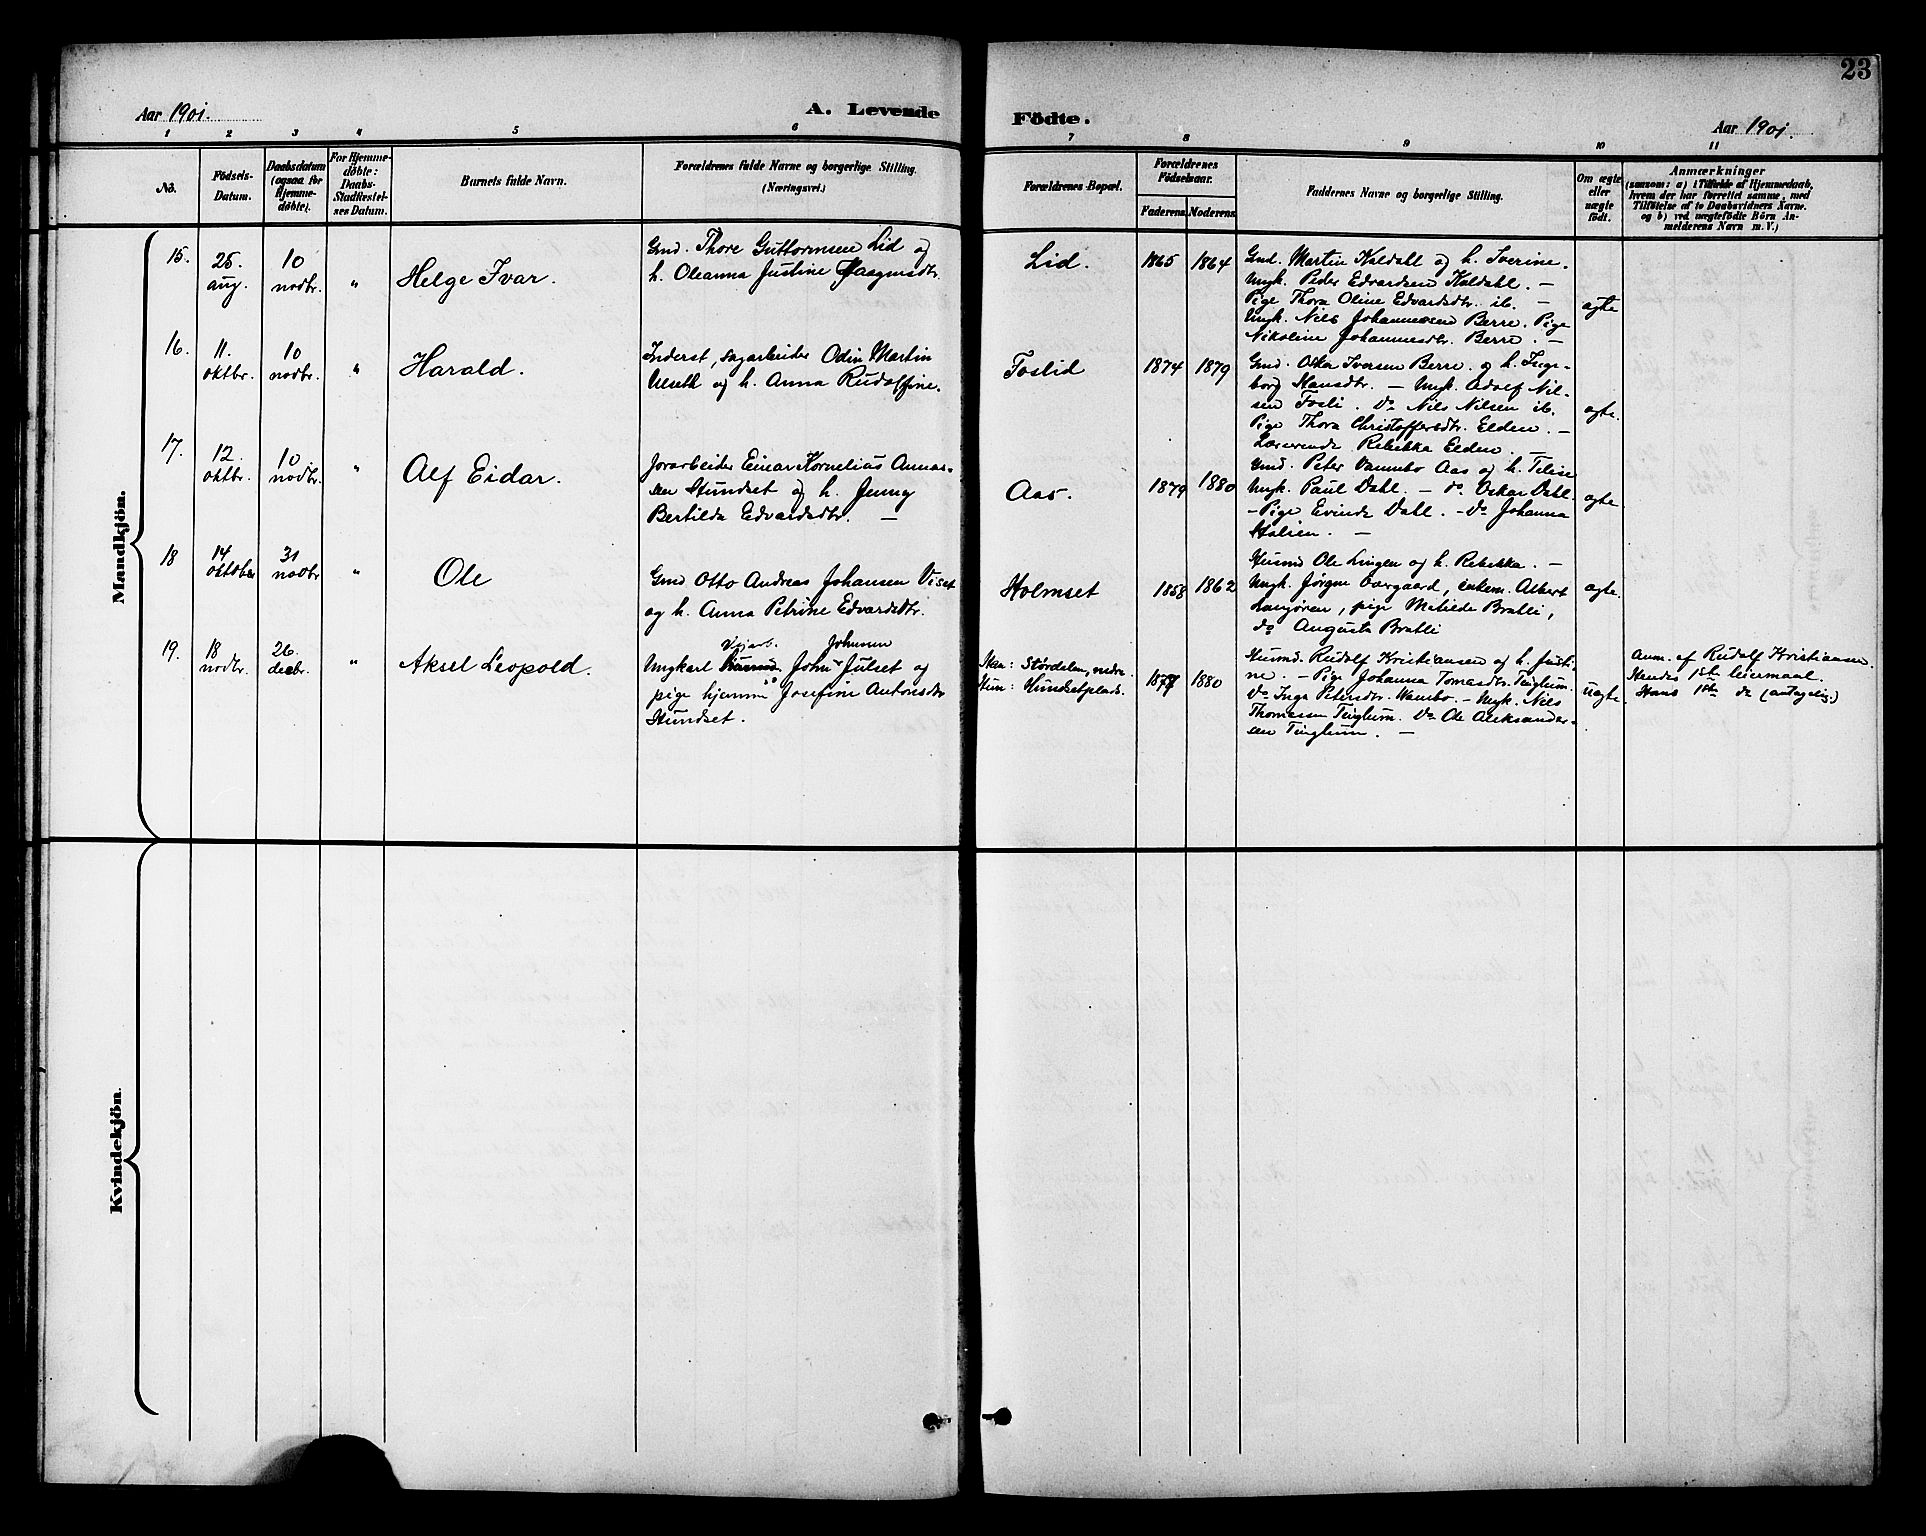 23
Aar 1901.
A. Levende
Födte.
Aar 1901.
1 2 3 4 5 6 7 8 9 10 11
No.
Födsels-
Datum.
Daabsdatum
(ogsaa for
Hjemme-
döbte).
For Hjemme-
döbte:
Daabs-
Stadfæstel-
ses Datum.
Barnets fulde Navn.
Forældrenes fulde Navne og borgerlige Stilling.
(Næringsvei.)
Forældrenes Bopæl.
Forældrenes
Födselsaar.
Faderens
Moderens
Faddernes Navne og borgerlige Stilling.
Om ægte
eller
uægte
födt.
Anmærkninger
(saasom: a) i Tilfælde af Hjemmedaab,
hvem der har forrettet samme, med
Tilföielse af to Daabsvidners Navne.
og b) ved uægtefödte Börn An-
melderens Navn m. V.)
Mandkjön.
15.
25.
aug.
10
novbr.
"
Helge Ivar.
Gmd. Thore Guttormsen Lid og
h. Oleanna Justine
Lid.
1865
1864
Gmd. Martin Kaldahl og h. Iverine.
Ungk. Peder Edvardsen Kaldahl. —
Pige Thora Oline Edvardsdtr. ib. —
Ungk. Nils Johannesen Berre. Pige
Nikoline Johannesdtr. Berre. —
ægte
16.
11.
oktbr.
10
novbr.
"
Harald.
Inderst, sagarbeider Odin Martin
Ulseth og h. Anna Rudolffine.
Foslid
1874
1879
Gmd. Oska Iversen Berre og h. Inge-
borg Hansdtr. — Ungk. Adolf Nil-
sen Fosli. Do Nils Nilsen ib.
Pige Thora Christoffersdtr. Elden. —
Lærerinde Rebekka Elden. —
ægte.
17.
12.
oktbr.
10
novbr.
"
Alf Eidar.
Jorarbeider Einar Kornelius Annas-
sen Hundset og h. Jenny
Bertilda Edvardsdtr. —
Aas.
1879
1880
Gmd. Peter Vannebo Aas og h. Telise
Ungk. Paul Dahl. — do. Oskar Dahl.
— Pige Evinda Dahl. — Do Johanna
Stalsen. —
ægte.
18
14
oktober
31
novbr
"
Ole
Gmd Otto Andreas Johansen Viset
og h. Anna Petrine Edvardsdtr.
Holmset
1858
1862
Husmd Ole Lingen og h. Rebekka. —
Ungk. Jørgen Overgaard, enkem. Albert
pige Matilde Bratli,
do Augusta Bratli
ægte.
19.
18
novbr.
26.
decbr.
"
Aksel Leopold.
Johansen
Ungkarl John Julset og
pige hjemme Josefine Antonsdtr
Hundset.
Han: Stördalen, nedre.
Hun: Hundsetplads.
1877
1880
Husmd. Rudolf Kristiansen og h. Justi-
ne. — Pige Johanna Tomasdtr. Tinglum.
Do Inga Petersdtr. Wambo. — Ungk. Nils
Thomassen Tinglum. Do Ole Aleksander-
sen Tinglum. —
uægte.
Anm. af Rudolf Kristiansen.
Hendes 1ste leiermaal.
Hans 1ste do (antagelig.)
Kvindekjön.